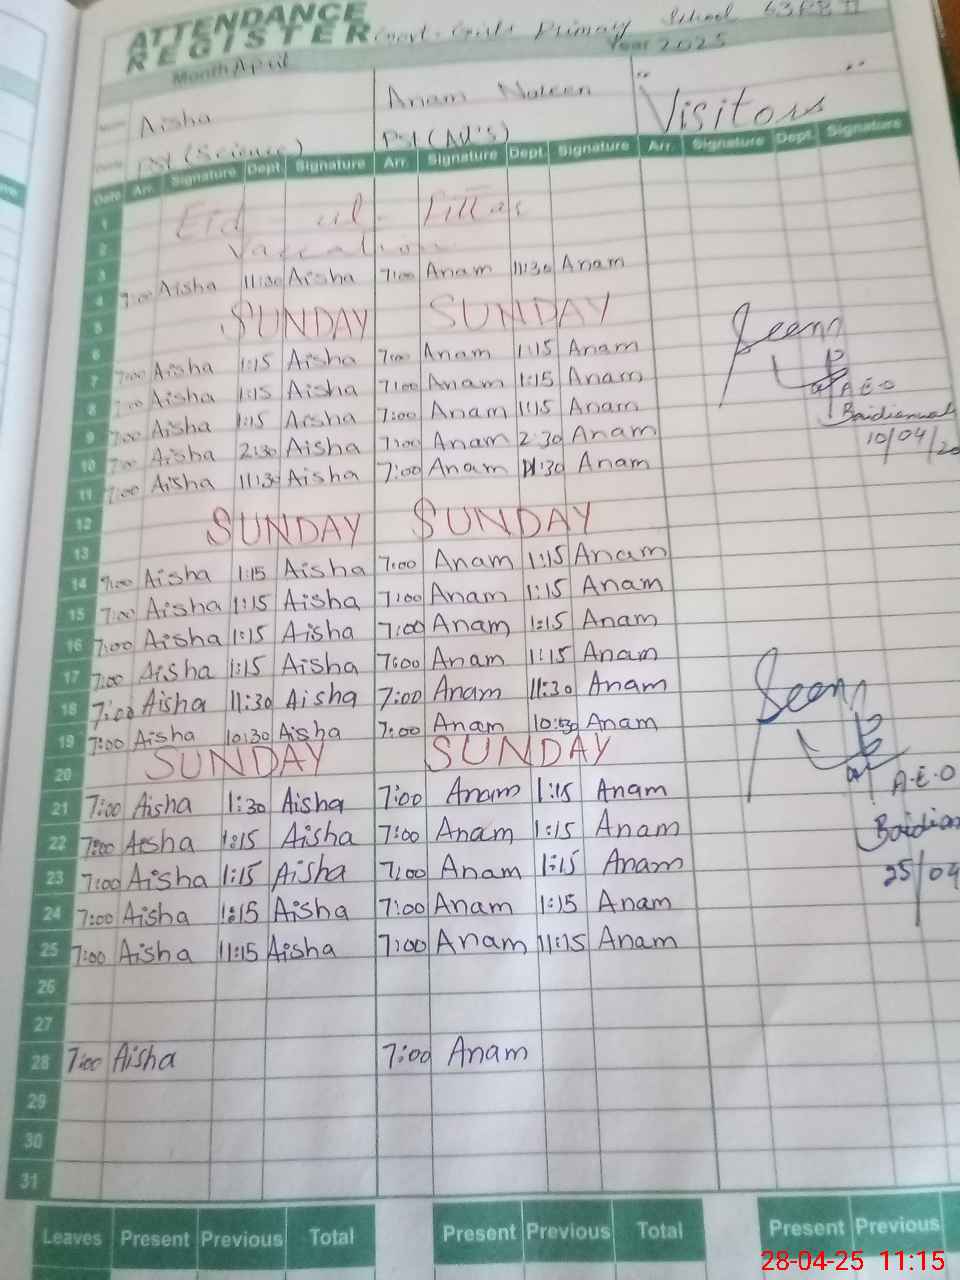 ATTENDANCE
REGISTER Govt. Girls Primary School 63 RB II
Month April Year 2025
Aisha Anam Noreen "Visitors"
PST (Science) PST (
Date Arr. Signature Dept. Signature Arr. Signature Dept. Signature Arr. Signature Dept. Signature
1 Eid ul. Fitter
2 Vacation
3 7:00 Aisha 11:30 Aisha 7:00 Anam 11:30 Anam
4
5 SUNDAY SUNDAY
6 7:00 Aisha 1:15 Aisha 7:00 Anam 1:15 Anam
7 7:00 Aisha 1:15 Aisha 7:00 Anam 1:15 Anam
8 7:00 Aisha 1:15 Aisha 7:00 Anam 1:15 Anam
9 7:00 Aisha 2:30 Aisha 7:00 Anam 2:30 Anam
10 7:00 Aisha 11:30 Aisha 7:00 Anam 11:30 Anam
11
Seen
A.E.O
10/04/20
12 SUNDAY SUNDAY
13
14 7:00 Aisha 1:15 Aisha 7:00 Anam 1:15 Anam
15 7:00 Aisha 1:15 Aisha 7:00 Anam 1:15 Anam
16 7:00 Aisha 1:15 Aisha 7:00 Anam 1:15 Anam
17 7:00 Aisha 1:15 Aisha 7:00 Anam 1:15 Anam
18 7:00 Aisha 11:30 Aisha 7:00 Anam 11:30 Anam
19 7:00 Aisha 10:30 Aisha 7:00 Anam 10:30 Anam
20 SUNDAY SUNDAY
21 7:00 Aisha 1:30 Aisha 7:00 Anam 1:15 Anam
22 7:00 Aisha 1:15 Aisha 7:00 Anam 1:15 Anam
23 7:00 Aisha 1:15 Aisha 7:00 Anam 1:15 Anam
24 7:00 Aisha 1:15 Aisha 7:00 Anam 1:15 Anam
25 7:00 Aisha 11:15 Aisha 7:00 Anam 11:15 Anam
Seen
A.E.O
25/04
26
27
28 7:00 Aisha 7:00 Anam
29
30
31
Leaves Present Previous Total Present Previous Total Present Previous
28-04-25 11:15